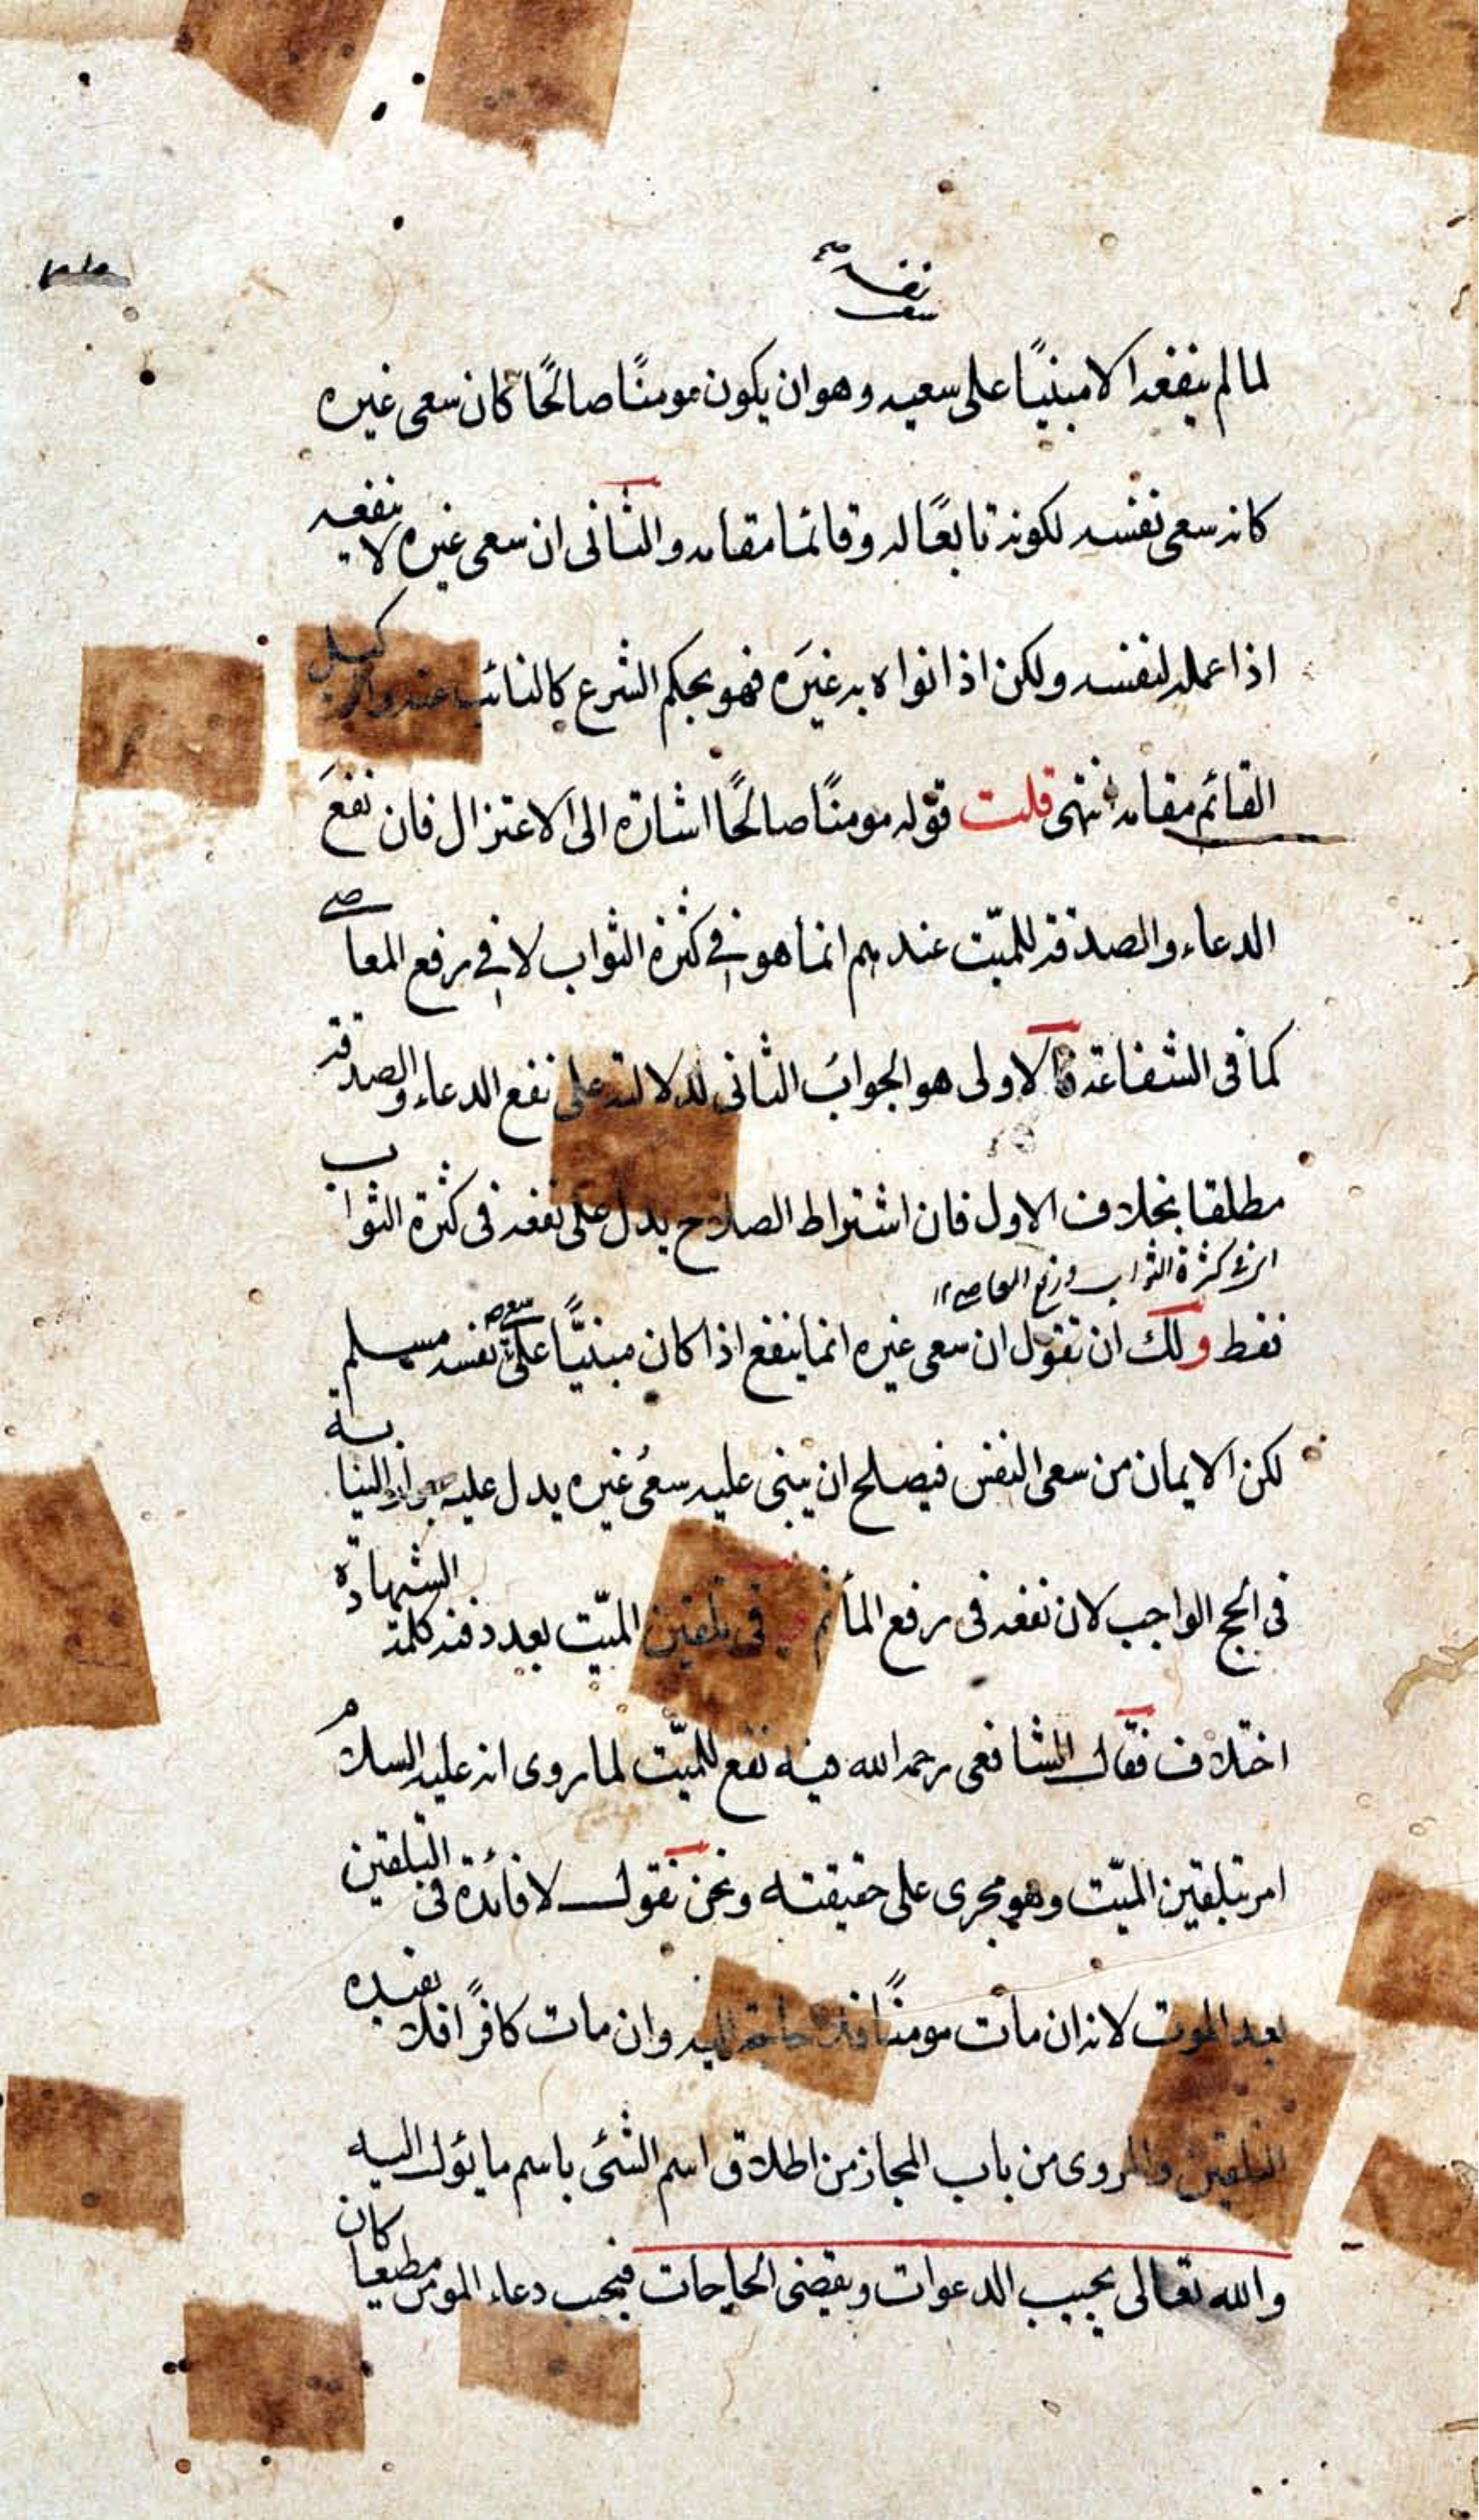 سعى نفسه صح
لما لم ينفعه الا مبنيًا على سعيه وهو ان يكون مومنًا صالحًا كان سعى غيره
كانه سعى نفسه لكونه تابعًا له وقائما مقامه والثانى ان سعى غيره لا ينفعه
اذا عمله لنفسه ولكن اذا نواه به غيرَه فهو بحكم الشرع كالنائب عنه والوكيل
القائم مقامه انتهى قلت قوله مومنًا صالحًا اشارة الى الاعتزال فان نفعَ
الدعاء والصدقة للميّت عندهم انما هو فى كثرة الثواب لا فى رفع المعاصى
كما فى الشفاعة فالاولى هو الجوابُ الثانى لدلالته على نفع الدعاء والصدقة
مطلقا بخلاف الاول فان اشتراط الصلاح يدل على نفعه فى كثرة الثواب
كثرة الثواب ورفع المعاصى ١٢
فقط ولك ان تقول ان سعى غيره انما ينفع اذا كان مبنيًّا على سعى نفسه مسلم
لكن الايمان من سعى النفس فيصلح ان يبنى عليه سعىُ غيره يدل عليه جواز النيابة
فى الحج الواجب لان نفعه فى رفع المأثم فى تلقين الميّت بعد دفنه كلمة الشهادة
اختلاف فقال الشافعى رحمه الله فيه نفع للميّت لما روى انه عليه السلام
امر بتلقين الميّت وهو مجرى على حقيقته ونحن نقول لا فائدة فى التلقين
بعد الموت لانه ان مات مومنًا فلا حاجة اليه وان مات كافرًا فلا يفيده
التلقين والمروى من باب المجاز من اطلاق اسم الشئ باسم ما يؤل اليه
والله تعالى يجيب الدعوات ويقضى الحاجات فيجب دعاء المومن مطيعا كان